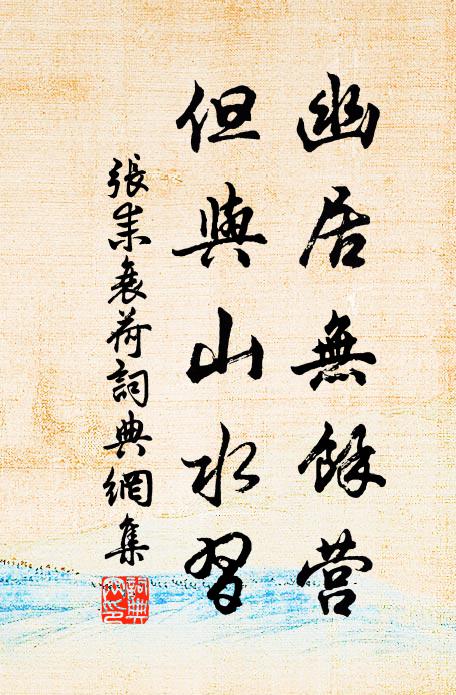 幽居無餘营
但與山水習
張耒衰荷詞典網集